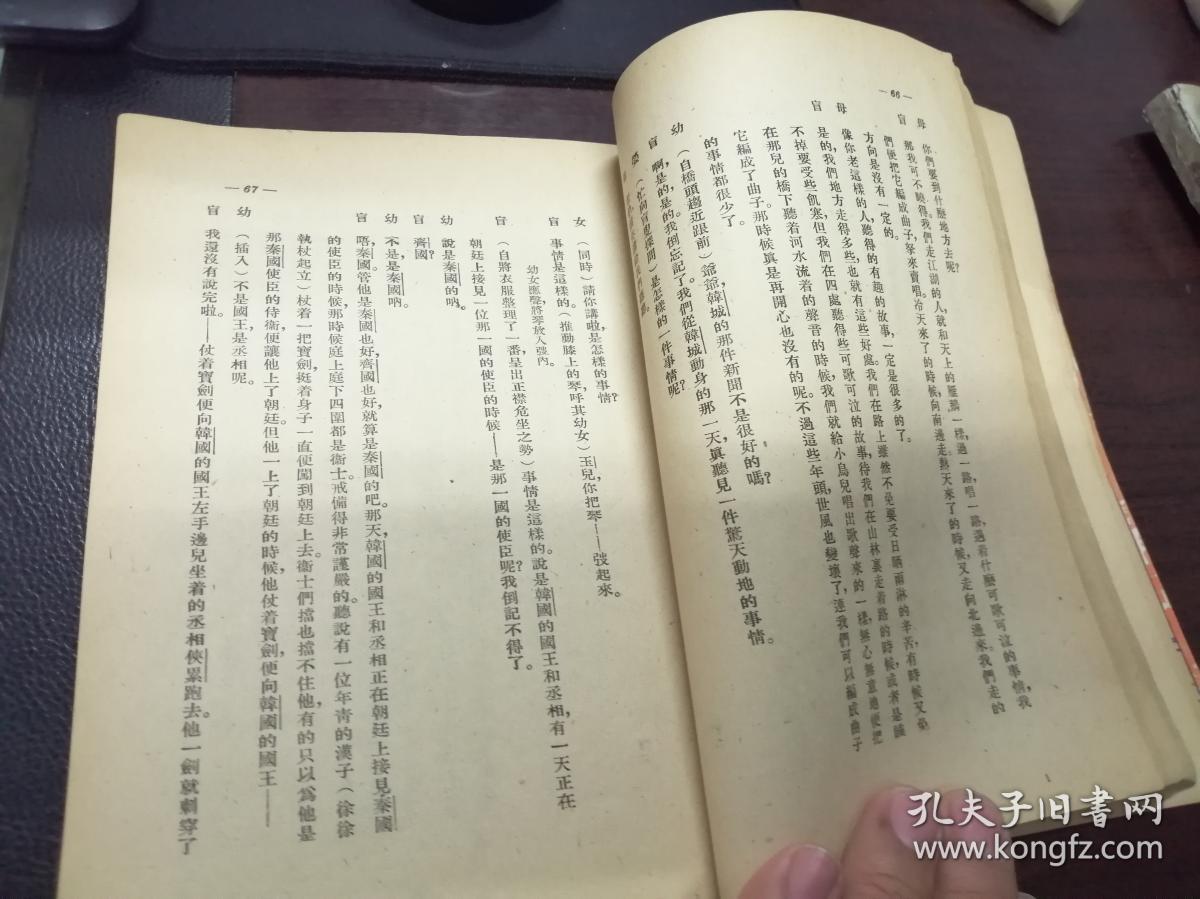 — 66 —
母 你們要到什麼地方去呢?
盲 那我可不曉得。我們走江湖的人,就和天上的雁鵝一樣,過一路,唱一路,遇着什麼可歌可泣的事情,我
們便把它編成曲子,拏來賣唱。冷天來了的時候,向南邊走,熱天來了的時候,又走向北邊來。我們走的
方向是沒有一定的。
母 像你老這樣的人,聽得的有趣的故事,一定是很多的了。
盲 是的,我們地方走得多些,也就有這些好處。我們在路上雖然不免要受日晒雨淋的辛苦,有時候又免
不掉要受些飢寒,但我們在四處聽得些可歌可泣的故事,待我們在山林裏走着路的時候,或者是睡
在那兒的橋下聽着河水流着的聲音的時候,我們就給小鳥兒唱出歌聲來的一樣,無心無意地便把
它編成了曲子,那時候眞是再開心也沒有的呢。不過這些年頭,世風也變壞了,連我們可以編成曲子
的事情都很少了。
幼 (自橋頭趨近跟前)爺爺,韓城的那件新聞不是很好的嗎?
盲 啊,是的,是的。我倒忘記了。我們從韓城動身的那一天,眞聽見一件驚天動地的事情。
(忙向盲叟探問)是怎樣的一件事情呢?
— 67 —
女 (同時)請你講啦,是怎樣的事情?
盲 事情是這樣的。(推動膝上的琴,呼其幼女)玉兒,你把琴——弢起來。
幼女應聲將琴放入弢內。
盲 (自將衣服整理了一番,呈出正襟危坐之勢)事情是這樣的。說是韓國的國王和丞相,有一天正在
朝廷上接見一位那一國的使臣的時候——是那一國的使臣呢?我倒記不得了。
幼 說是秦國的吶。
盲 齊國?
幼 不是,是秦國吶。
盲 唔,秦國。管他是秦國也好,齊國也好,就算是秦國的吧。那天,韓國的國王和丞相正在朝廷上接見秦國
的使臣的時候,那時候庭上庭下四圍都是衞士,戒備得非常謹嚴的。聽說有一位年青的漢子(徐徐
執杖起立)杖着一把寶劍,挺着身子一直便闖到朝廷上去。衞士們擋也擋不住他,有的只以爲他是
那秦國使臣的侍衞,便讓他上了朝廷。但他一上了朝廷的時候,他仗着寶劍,便向韓國的國王——
幼 (插入)不是國王,是丞相呢。
盲 我還沒有說完啦——仗着寶劍便向韓國的國王左手邊兒坐着的丞相俠累跑去。他一劍就刺穿了
孔夫子旧书网
www.kongfz.com